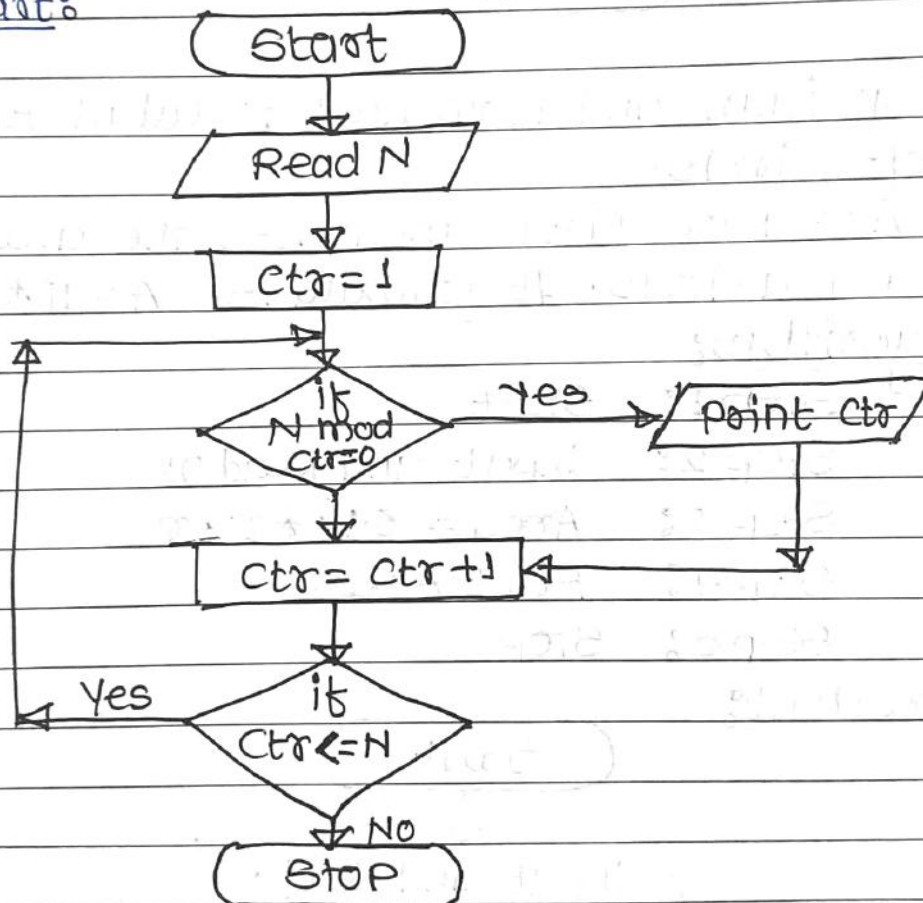 Start
Read N
Ctr=1
if
N mod
Ctr=0
Yes
Print Ctr
Ctr= Ctr+1
if
Ctr<=N
Yes
No
Stop